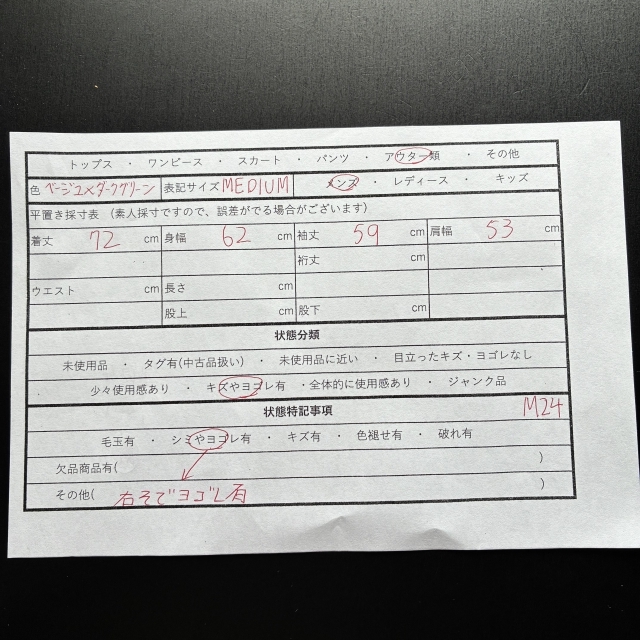 トップス ・ ワンピース ・ スカート ・ パンツ ・ アウター類 ・ その他
色 ベージュ×ダークグリーン 表記サイズ MEDIUM メンズ ・ レディース ・ キッズ
平置き採寸表 (素人採寸ですので、誤差がでる場合がございます)
着丈 72 cm 身幅 62 cm 袖丈 59 cm 肩幅 53 cm
裄丈 cm
ウエスト cm 長さ cm
股上 cm 股下 cm
状態分類
未使用品 ・ タグ有(中古品扱い) ・ 未使用品に近い ・ 目立ったキズ・ヨゴレなし
少々使用感あり ・ キズやヨゴレ有 ・全体的に使用感あり ・ ジャンク品
状態特記事項 M24
毛玉有 ・ シミやヨゴレ有 ・ キズ有 ・ 色褪せ有 ・ 破れ有
欠品商品有( )
その他( 右そでヨゴレ有 )